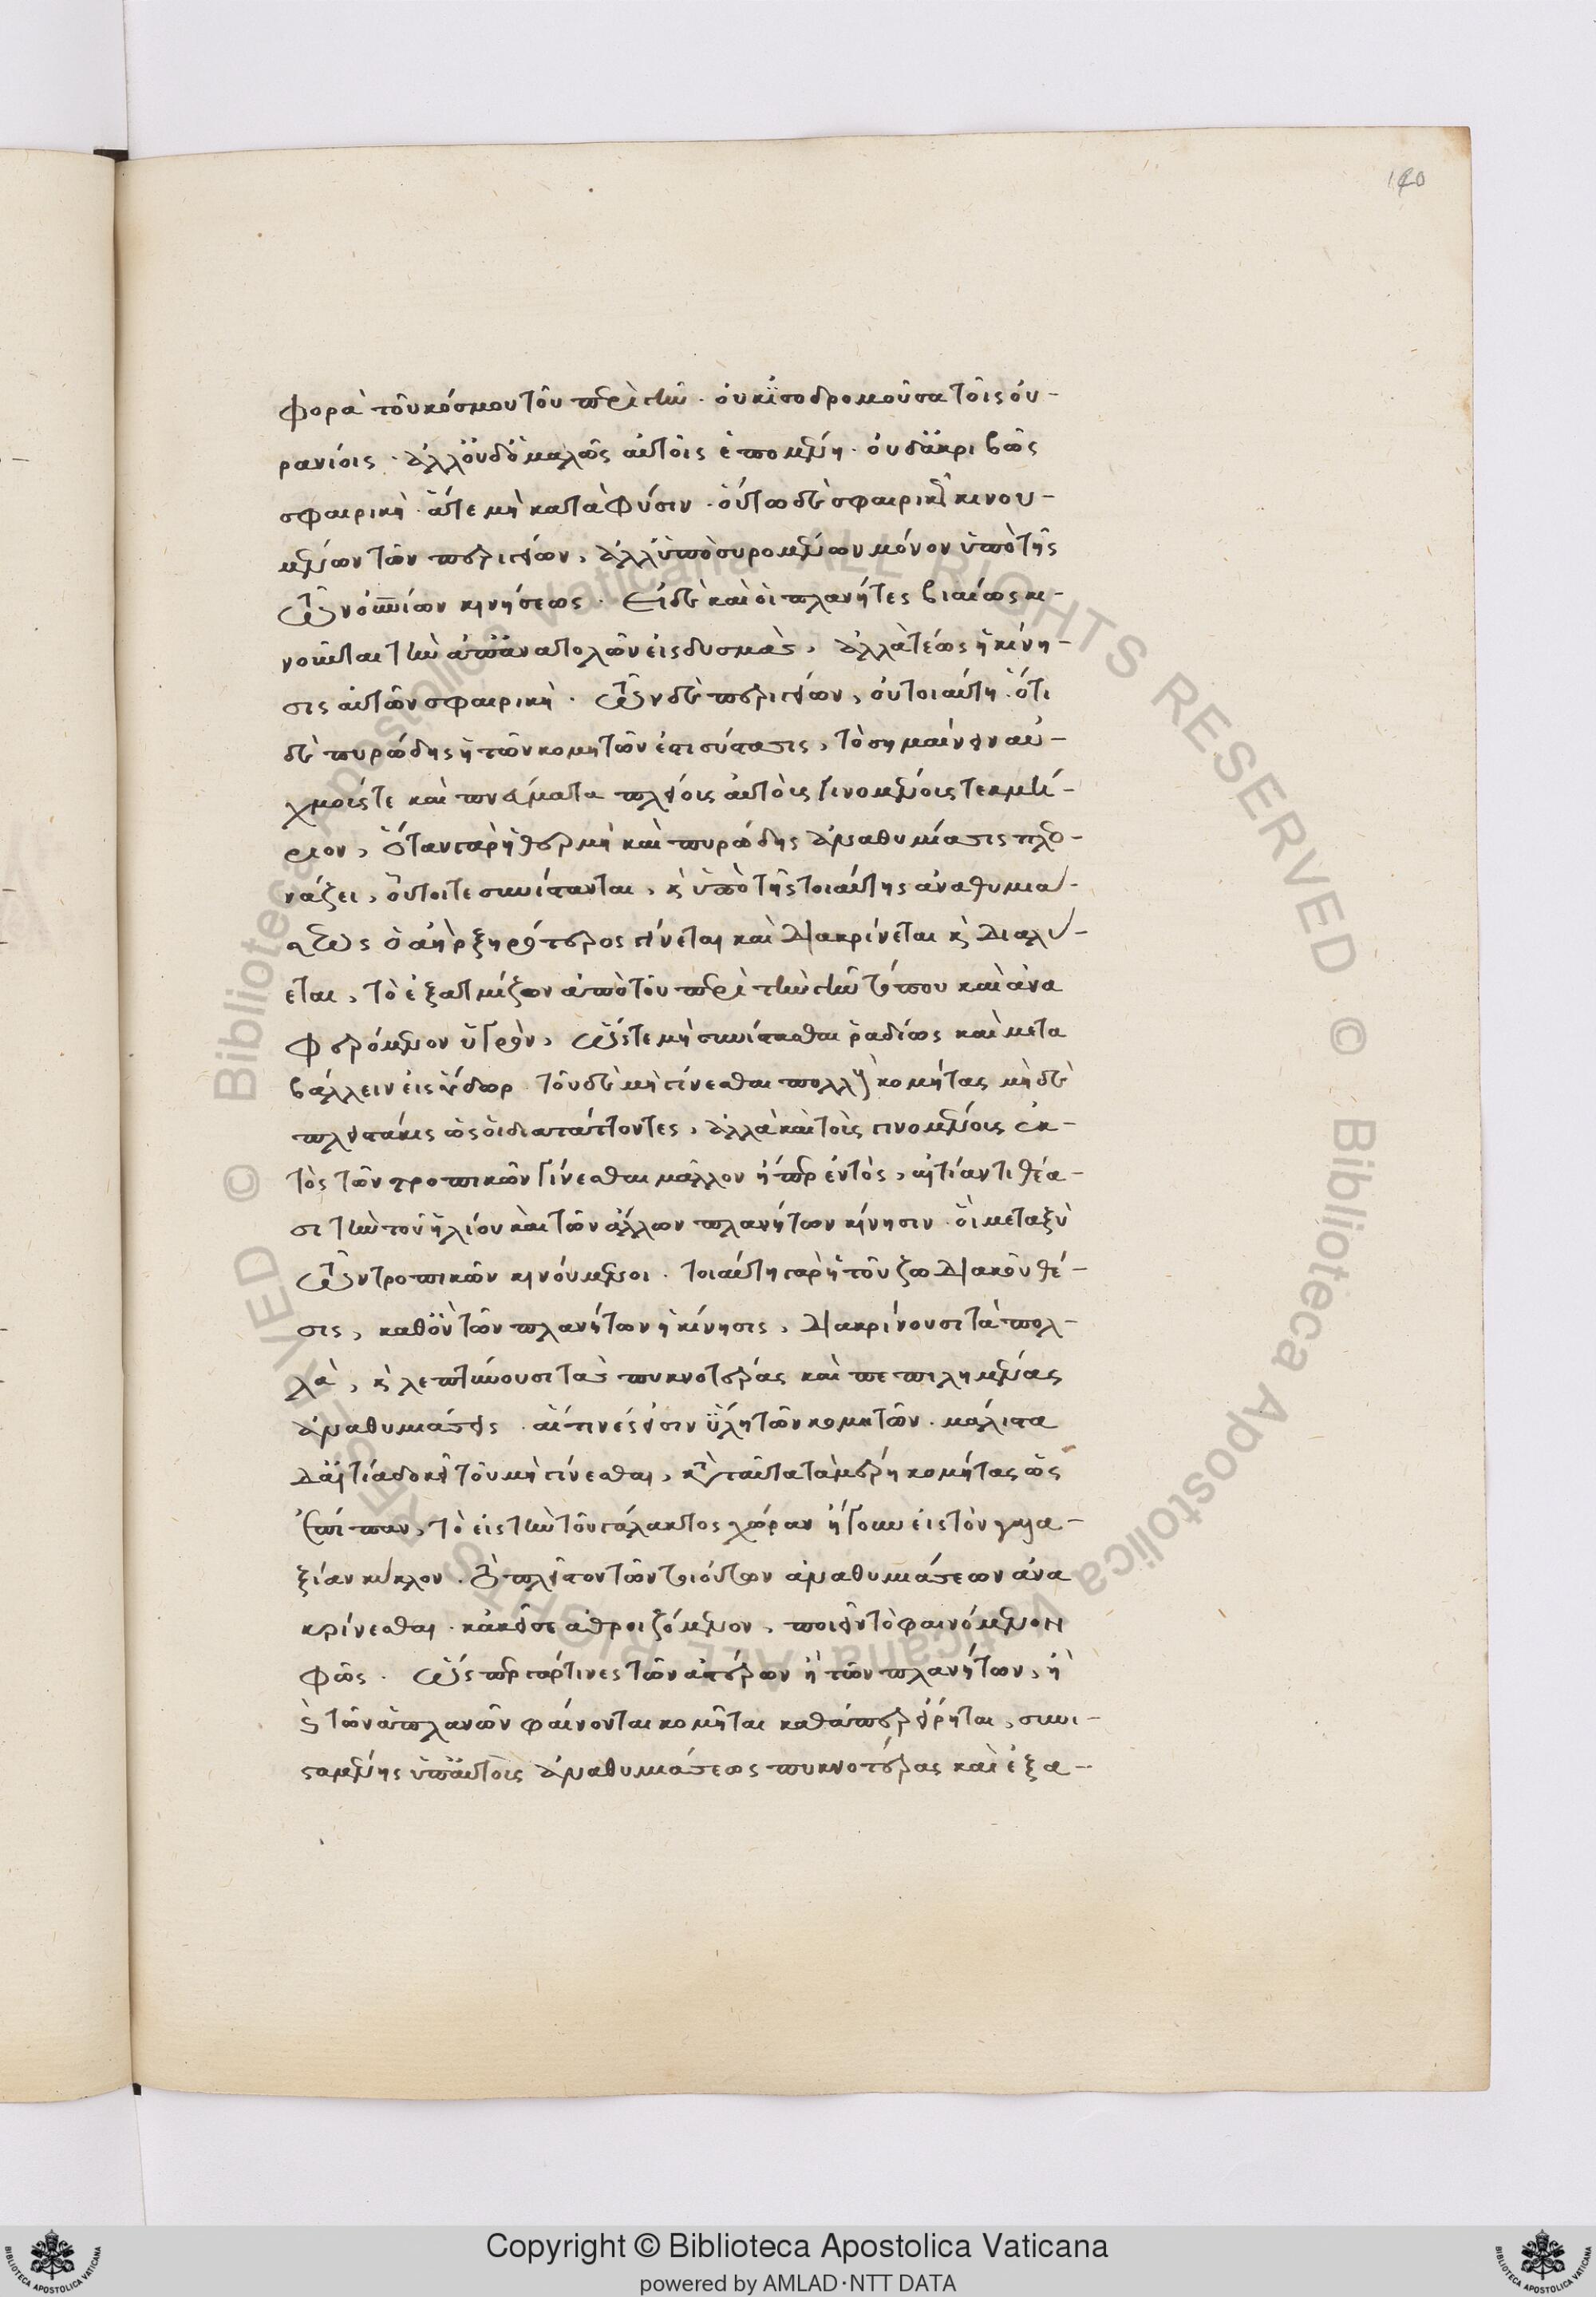 140
φορὰ τοῦ κόσμου τοῦ περὶ γῆν · οὐκ ἰσοδρομοῦσα τοῖς οὐ-
ρανίοις · ἀλλ' οὐδ' ὁμαλῶς αὐτοῖς ἑπομένη · οὐδ' ἀκριβῶς
σφαιρική · ἅτε μὴ κατὰ φύσιν · οὕτω δὲ σφαιρικῶς κινου-
μένων τῶν περιγείων, ἀλλ' ὑποσυρομένων μόνον ὑπὸ τῆς
τῶν οὐνίων κινήσεως · Εἰ δὲ καὶ οἱ πλανῆτες βιαίως κι-
νοῦνται τὴν ἀπ' ἀνατολῶν εἰς δυσμὰς, ἀλλὰ τέως ἡ κίνη-
σις αὐτῶν σφαιρική · τῶν δὲ περιγείων, οὐ τοιαύτη · ὅτι
δὲ πυρώδης ἡ τῶν κομητῶν ἐπισύστασις, τὸ σημαίνειν αὐ-
χμούς τε καὶ πνεύματα πλείοις αὐτοῖς γινομένοις τεκμή-
ριον, ὅταν γὰρ ἡ θερμὴ καὶ πυρώδης ἀναθυμίασις πλεο-
νάζει, οὗτοί τε συνίστανται, κ ὑπὸ τῆς τοιαύτης ἀναθυμιά-
σεως ὁ ἀὴρ ξηρότερος γίνεται καὶ διακρίνεται κ διαλύ-
εται, τὸ ἐξατμίζον ἀπὸ τοῦ περὶ τὴν γῆν τόπου καὶ ἀνα
φερόμενον ὑγρὸν, ὥστε μὴ συνίστασθαι ῥαδίως καὶ μετα
βάλλειν εἰς ὕδωρ · τοῦ δὲ μὴ γίνεσθαι πολλοὺς κομήτας μηδὲ
πλειστάκις ὡς οἱ διαπάττοντες, ἀλλὰ καὶ τοῖς γινομένοις ἐκ-
τὸς τῶν τροπικῶν γίνεσθαι μᾶλλον ἤπερ ἐντὸς, αἰτίαν τιθέα-
σι τὴν τοῦ ἡλίου καὶ τῶν ἄλλων πλανήτων κίνησιν · οἳ μεταξὺ
τῶν τροπικῶν κινούμενοι · τοιαύτη γὰρ ἡ τοῦ ζωδιακοῦ θέ-
σις, καθ' ὃν τῶν πλανήτων ἡ κίνησις, διακρίνουσι τὰ πολ-
λὰ, κ λεπτύνουσι τὰς πυκνοτέρας καὶ πεπιλημένας
ἀναθυμιάσεις · αἵτινές εἰσιν ὕλη τῶν κομητῶν · μάλιστα
δ' αἰτία δοκεῖ τοῦ μὴ γίνεσθαι, κατὰ ταῦτα τὰ μέρη κομήτας ὡς
ἐπίπαν, τὸ εἰς τὴν τοῦ γάλακτος χώραν ἤγουν εἰς τὸν γαλα-
ξίαν κύκλον · τὸ πλεῖστον τῶν τοιούτων ἀναθυμιάσεων ἀνα
κρίνεσθαι · κἀκεῖσε ἀθροιζόμενον, ποιεῖν τὸ φαινόμενον
φῶς · ὥσπερ γάρ τινες τῶν ἀστέρων ἢ τῶν πλανήτων, ἢ
κ τῶν ἀπλανῶν φαίνονται κομῆται καθάπερ εἴρηται, συνι-
σταμένης ὑπ' αὐτοῖς ἀναθυμιάσεως πυκνοτέρας καὶ ἐξα-
Copyright © Biblioteca Apostolica Vaticana
powered by AMLAD·NTT DATA